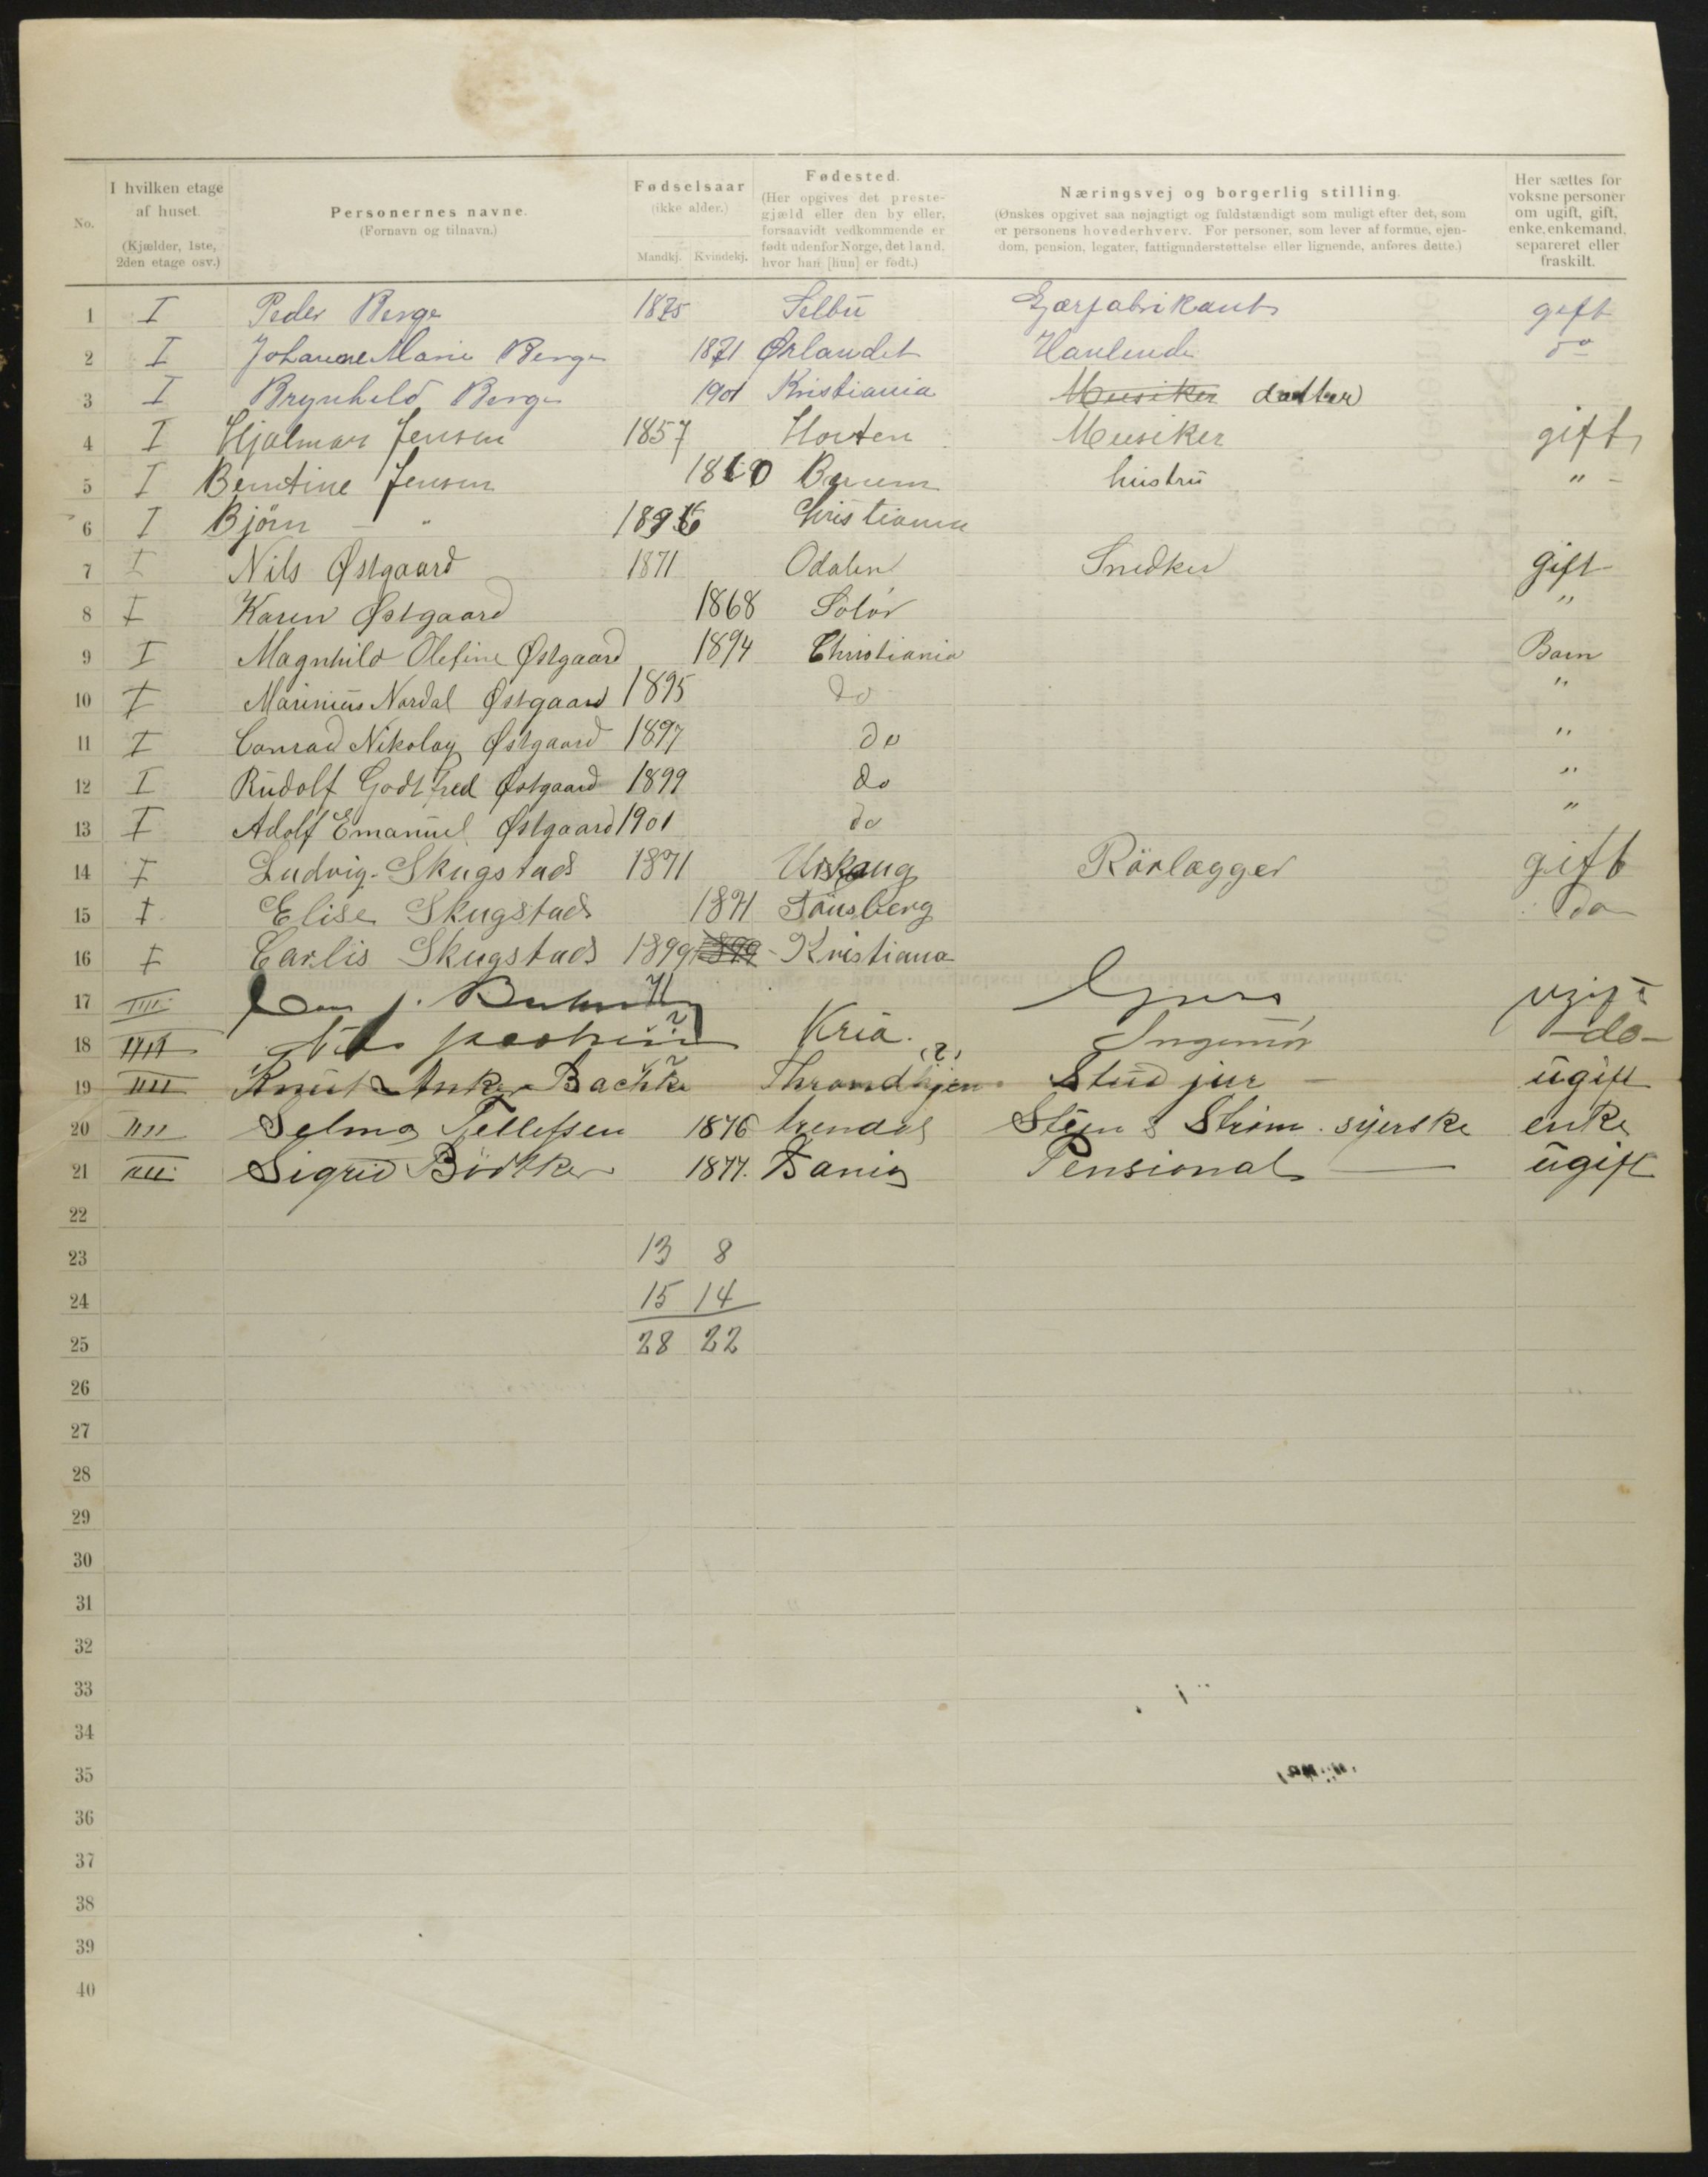 No.
I hvilken etage af huset. (Kjælder, 1ste, 2den etage osv.)
Personernes navne. (Fornavn og tilnavn.)
Fødselsaar (ikke alder.) Mandkj. Kvindekj.
Fødested. (Her opgives det prestegjæld eller den by eller, forsaavidt vedkommende er født udenfor Norge, det land, hvor han [hun] er født.)
Næringsvej og borgerlig stilling. (Ønskes opgivet saa nøjagtigt og fuldstændigt som muligt efter det, som er personens hovederhverv. For personer, som lever af formue, ejendom, pension, legater, fattigunderstøttelse eller lignende, anføres dette.)
Her sættes for voksne personer om ugift, gift, enke, enkemand, separeret eller fraskilt.
1 I Peder Berge 1875 Selbu Gjærfabrikant gift
2 I Johanne Marie Berge 1871 Ørlandet do
3 I Brynhild Berge 1901 Kristiania Musiker datter
4 I Hjalmar Jensen 1857 Horten Musiker gift
5 I Berntine Jensen 1860 Bærum hustru "
6 I Björn — " 1896 Christiania
7 I Nils Østgaard 1871 Odalen Snedker gift
8 I Karen Østgaard 1868 Solør "
9 I Magnhild Olefine Østgaard 1894 Christiania Barn
10 I Marinius Nordal Østgaard 1895 do "
11 I Conrad Nikolay Østgaard 1897 do "
12 I Rudolf Godtfred Østgaard 1899 do "
13 I Adolf Emanuel Østgaard 1901 do "
14 I Ludvig Skugstad 1871 Urskoug Rörlægger gift
15 I Elise Skugstad 1871 Tönsberg do
16 I Carlis Skugstad 1899 1899 Kristiana
17 IIII 71 ugift
18 IIII Kria. Ingeniör do
19 IIII Knut Anker Bachke ? Throndhjem (?) Stud jur ugift
20 IIII Selma Tellefsen 1876 Arendal Steen & Ström syerske enke
21 IIII Sigrid Bödtker 1877. Pensionat ugift
22
23 13 8
24 15 14
25 28 22
26
27
28
29
30
31
32
33
34
35
36
37
38
39
40